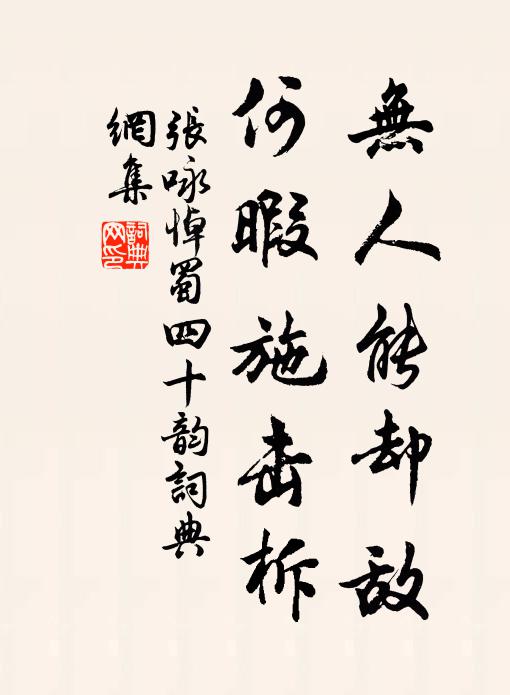 無人能却敌
何暇施击柝
張咏悼蜀四十韵詞典
網集
詞典网印